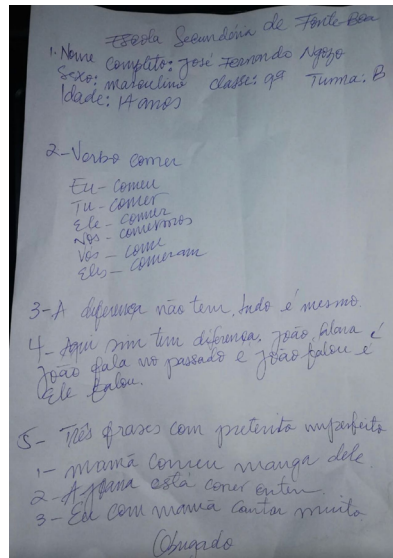 Escola Secundária de Fonte Boa
1. Nome Completo: José Fernando Ngozo
Sexo: masculino classe: 9ª Turma: B
Idade: 14 anos
2 - Verbo comer
Eu - comeu
Tu - comer
Ele - comer
Nós - comermos
Vós - come
Eles - comeram
3 - A diferença não tem, tudo é mesmo.
4 - Aqui sim tem diferença, João falara é
João fala no passado e João falou é
Ele falou.
5 - Três frases com pretérito imperfeito
1 - mamã comeu manga dele
2 - A Joana está comer ontem.
3 - Eu com mamã cantar muito
Obrigado